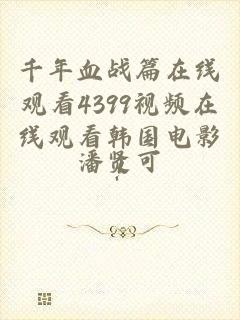 千年血战篇在线
观看4399视频在
线观看韩国电影
潘贤可